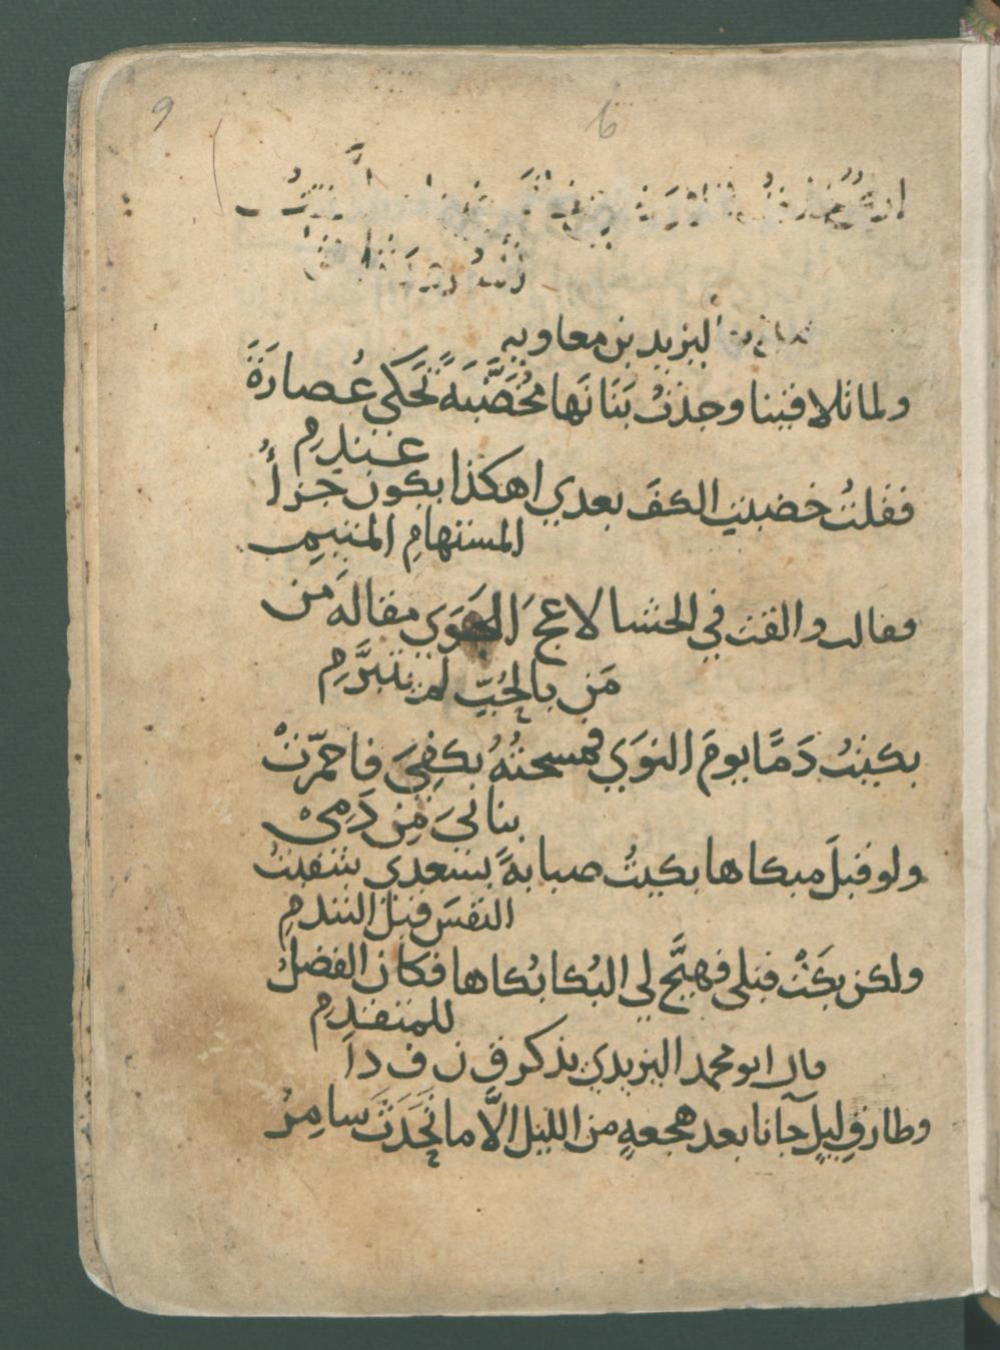 9
6
ليزيد بن معاويه
ولما تلاقينا وجدتُ بَنَانَها مخُضَّبَةً تحَكى عُصارَةَ
عندمِ
فقلتُ خضبتِ الكفَ بعدي اهكذا يكون جزأُ
المستهامِ المتيمِ
فقالت والقت في الحشا لاعجَ الجَوَى مقالةَ من
مَن بالحُبِّ لم يتبرَّمِ
بكيتُ دَمًا يومَ النوَي فمسحتُهُ بكفِيَ فاحمرّتْ
بنانىَ مِن دَمِىْ
ولو قبلَ مبكاها بكيتُ صبابةً بسعدي شفيتُ
النفسَ قبل التندمِ
ولكن بكَتْ قبلى فهيَّج لي البُكا بُكاها فكان الفضلُ
للمتقدمِ
قال ابو محمد اليزيدي يذكر ق ن ف داً
وطارقِ ليلٍ جآنا بعد هجعةٍ من الليل الاَّ ما تحَدَثَ سامِرُ